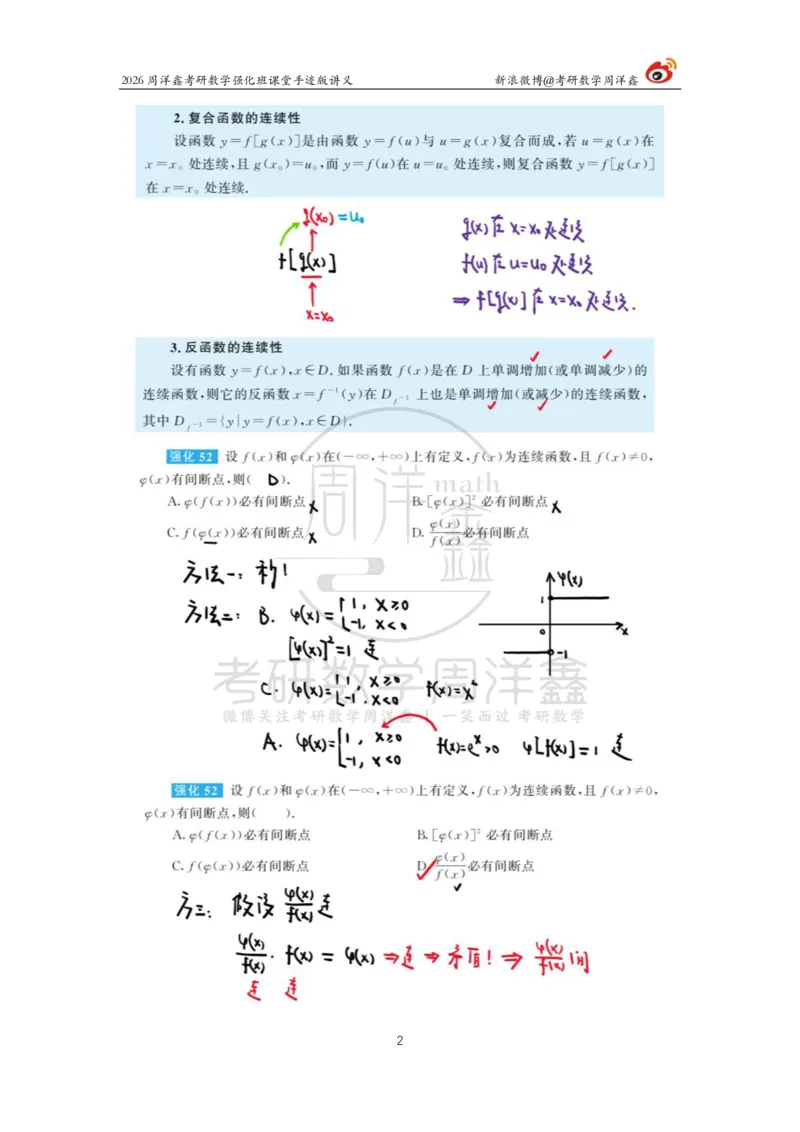 2026周洋鑫考研数学强化班课堂手迹版讲义 新浪微博@考研数学周洋鑫
2.复合函数的连续性
设函数 y=f[g(x)]是由函数 y=f(u)与 u=g(x)复合而成,若 u=g(x)在
x=x₀ 处连续,且 g(x₀)=u₀,而 y=f(u)在 u=u₀ 处连续,则复合函数 y=f[g(x)]
在 x=x₀ 处连续.
g(x₀)=u₀
f[g(x)]
x=x₀
g(x)在 x=x₀处连续
f(u)在u=u₀处连续
⇒ f[g(x)]在x=x₀处连续.
3.反函数的连续性
设有函数 y=f(x),x∈D.如果函数 f(x)是在 D 上单调增加(或单调减少)的
连续函数,则它的反函数 x=f⁻¹(y)在 D_{f⁻¹} 上也是单调增加(或减少)的连续函数,
其中 D_{f⁻¹}={y|y=f(x),x∈D}.
强化 52 设 f(x)和 φ(x)在(-∞,+∞)上有定义,f(x)为连续函数,且 f(x)≠0,
φ(x)有间断点,则( D ).
A.φ(f(x))必有间断点 × B.[φ(x)]² 必有间断点 ×
C.f(φ(x))必有间断点 × D.φ(x)/f(x)必有间断点
方法一:秒!
方法二: B. φ(x)={1, x≥0
-1, x<0
[φ(x)]²=1 连
φ(x)
1
0
x
-1
C. φ(x)={1, x≥0 f(x)=x²
-1, x<0
A. φ(x)={1, x≥0 f(x)=eˣ>0 φ[f(x)]=1 连
-1, x<0
周洋鑫
math
考研数学周洋鑫
微博关注考研数学周洋鑫 | 一笑而过 考研数学
强化 52 设 f(x)和 φ(x)在(-∞,+∞)上有定义,f(x)为连续函数,且 f(x)≠0,
φ(x)有间断点,则( ).
A.φ(f(x))必有间断点 B.[φ(x)]² 必有间断点
C.f(φ(x))必有间断点 D.φ(x)/f(x)必有间断点
方三: 假设 φ(x)/f(x) 连
φ(x)/f(x)·f(x)=φ(x)⇒连⇒矛盾!⇒φ(x)/f(x)间
连 连
2